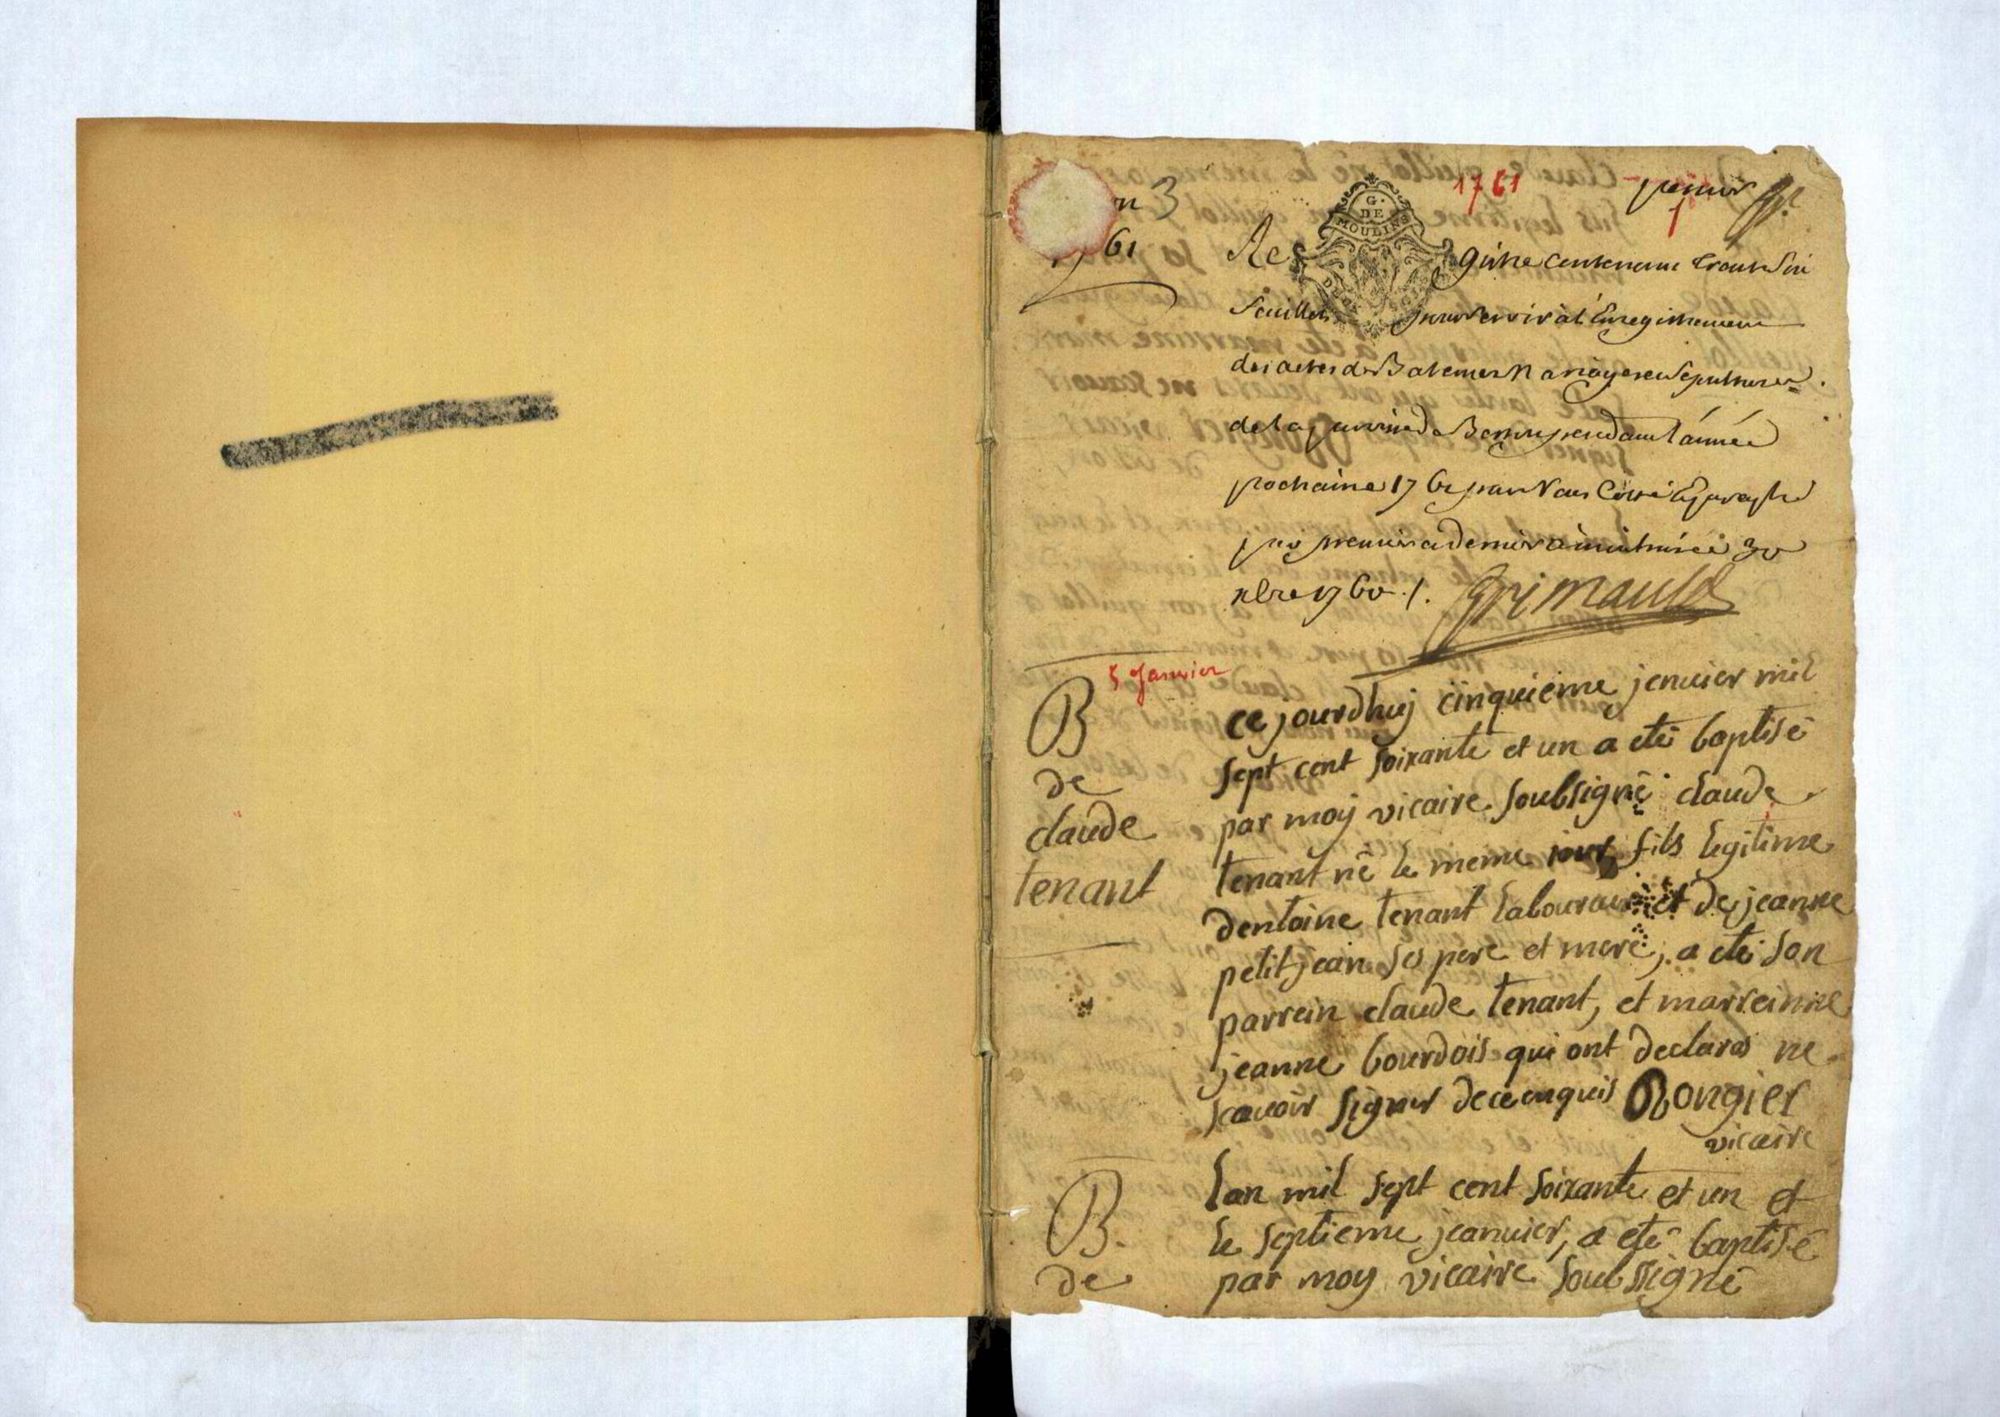 1761
premier
n 3
61
G.
DE
MOULINS
Registre contenant trante six
feuillets pour servir à l'Enregistrement
des actes de Batemes Mariages et Sepultures
de la paroisse de pendant l'année
prochaine 1761 par Nous Cotté et paraphé
par premier et dernier 30
1760 ./. Grimauld
5 Janvier
B
de
claude
tenant
ce jourdhuy cinquieme jenvier mil
sept cent soixante et un a eté baptisé
par moy vicaire soubsigné claude
tenant né le meme jour, fils legitime
dentoine tenant laboureur et de jeanne
petitjean ses pere et mere, a eté son
parrein claude tenant, et marreinne
jeanne bourdois qui ont declares ne
scavoir signer de ce enquis Rongier
vicaire
B.
de
lan mil sept cent soixante et un et
le septieme jeanvier, a eté baptisé
par moy vicaire soubssigné